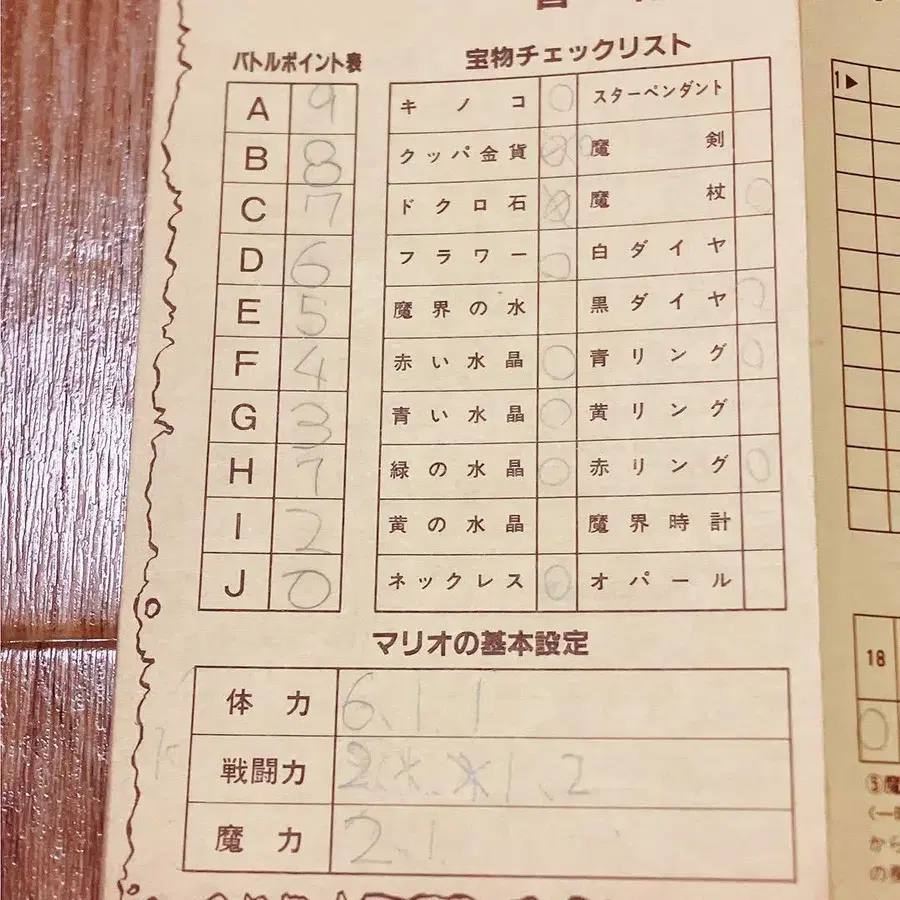 バトルポイント表
A 9
B 8
C 7
D 6
E 5
F 4
G 3
H 7
I 2
J 0
宝物チェックリスト
キノコ ○ スターペンダント
クッパ金貨 魔剣
ドクロ石 魔杖 ○
フラワー ○ 白ダイヤ
魔界の水 黒ダイヤ ○
赤い水晶 ○ 青リング ○
青い水晶 ○ 黄リング
緑の水晶 ○ 赤リング ○
黄の水晶 魔界時計
ネックレス ○ オパール
マリオの基本設定
体力 6、1、1
戦闘力 2 1、2
魔力 2、1
1▶
18
○
⑤魔
から